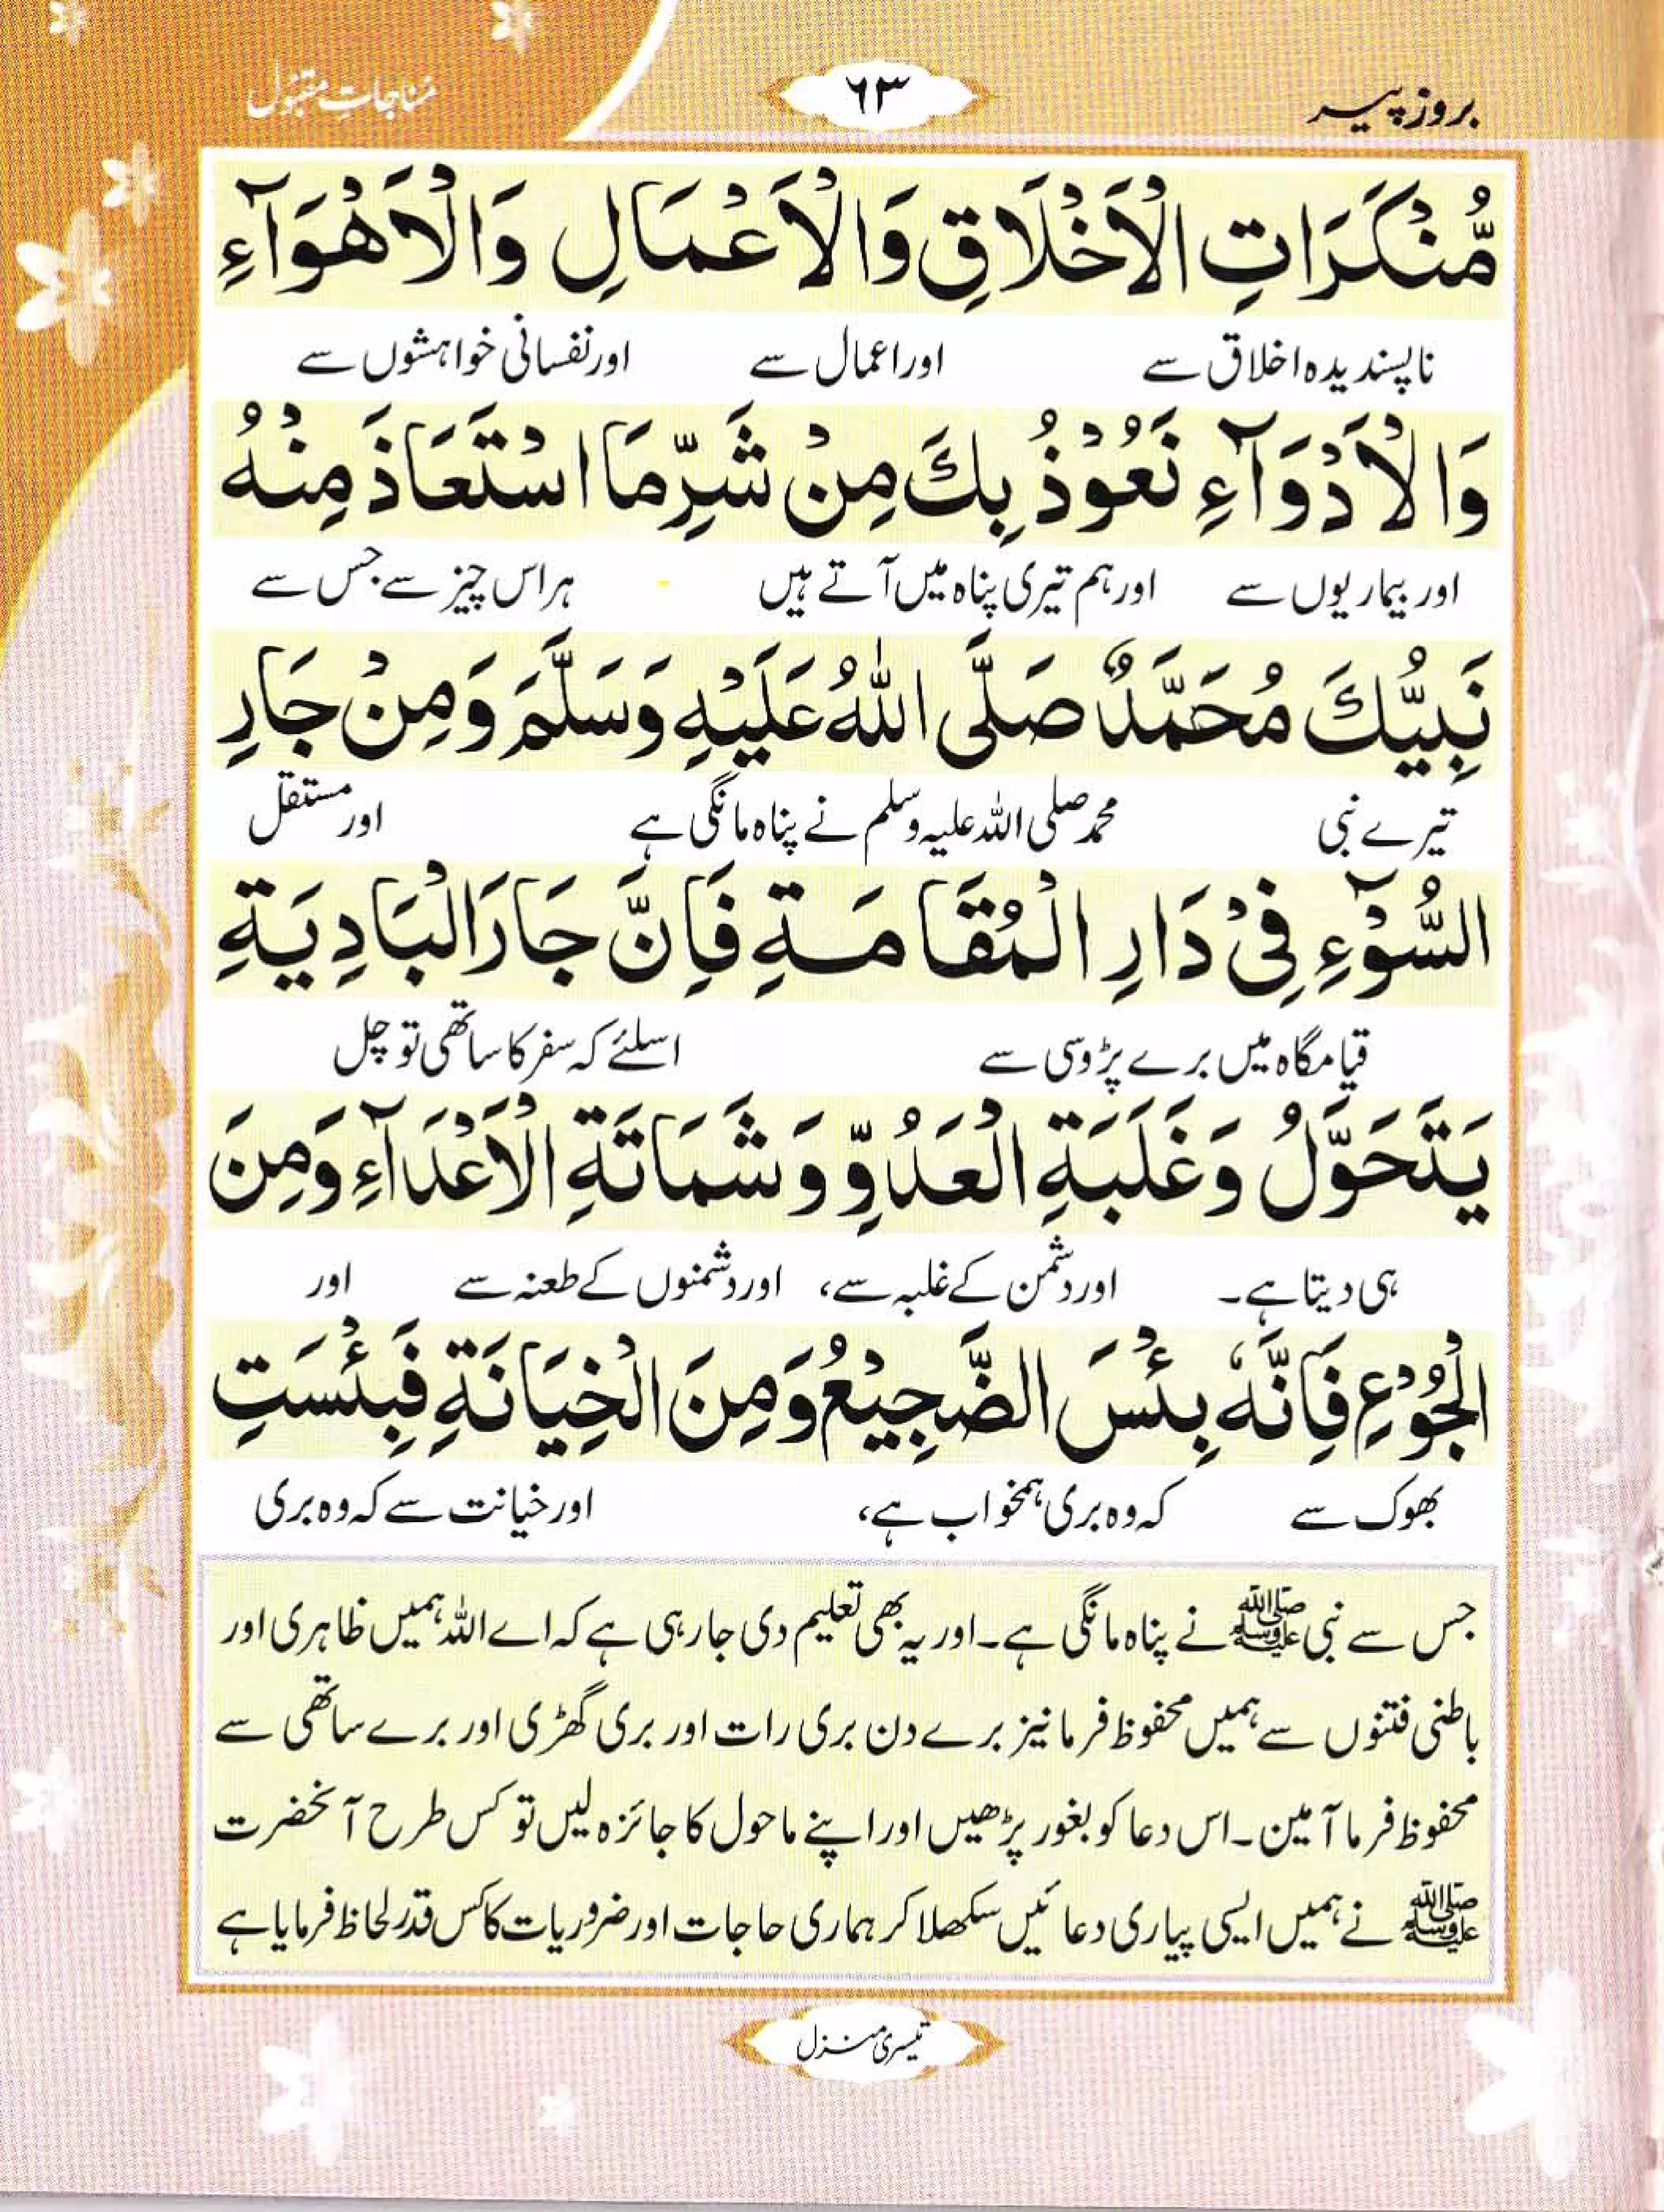 بروز پیر
٦٣
مناجاتِ مقبول
مُّنْكَرَاتِ الْاَخْلَاقِ وَالْاَعْمَالِ وَالْاَهْوَآءِ
ناپسندیدہ اخلاق سے اور اعمال سے اور نفسانی خواہشوں سے
وَالْاَدْوَآءِ نَعُوْذُ بِكَ مِنْ شَرِّ مَا اسْتَعَاذَ مِنْهُ
اور بیماریوں سے اور ہم تیری پناہ میں آتے ہیں ہر اس چیز سے جس سے
نَبِيُّكَ مُحَمَّدٌ صَلَّى اللّٰهُ عَلَيْهِ وَسَلَّمَ وَمِنْ جَارِ
تیرے نبی محمد صلی اللہ علیہ وسلم نے پناہ مانگی ہے اور مستقل
السُّوْٓءِ فِيْ دَارِ الْمُقَامَةِ فَاِنَّ جَارَ الْبَادِيَةِ
قیامگاہ میں برے پڑوسی سے اسلئے کہ سفر کا ساتھی تو چل
يَتَحَوَّلُ وَغَلَبَةِ الْعَدُوِّ وَشَمَاتَةِ الْاَعْدَآءِ وَمِنَ
ہی دیتا ہے۔ اور دشمن کے غلبہ سے، اور دشمنوں کے طعنہ سے اور
الْجُوْعِ فَاِنَّهٗ بِئْسَ الضَّجِيْعُ وَمِنَ الْخِيَانَةِ فَبِئْسَتِ
بھوک سے کہ وہ بری ہمخواب ہے، اور خیانت سے کہ وہ بری
جس سے نبی ﷺ نے پناہ مانگی ہے۔ اور یہ بھی تعلیم دی جارہی ہے کہ اے اللہ ہمیں ظاہری اور
باطنی فتنوں سے ہمیں محفوظ فرما نیز برے دن بری رات اور بری گھڑی اور برے ساتھی سے
محفوظ فرما آمین۔ اس دعا کو بغور پڑھیں اور اپنے ماحول کا جائزہ لیں تو کس طرح آنحضرت
ﷺ نے ہمیں ایسی پیاری دعائیں سکھلا کر ہماری حاجات اور ضروریات کا کس قدر لحاظ فرمایا ہے
تیسری منزل